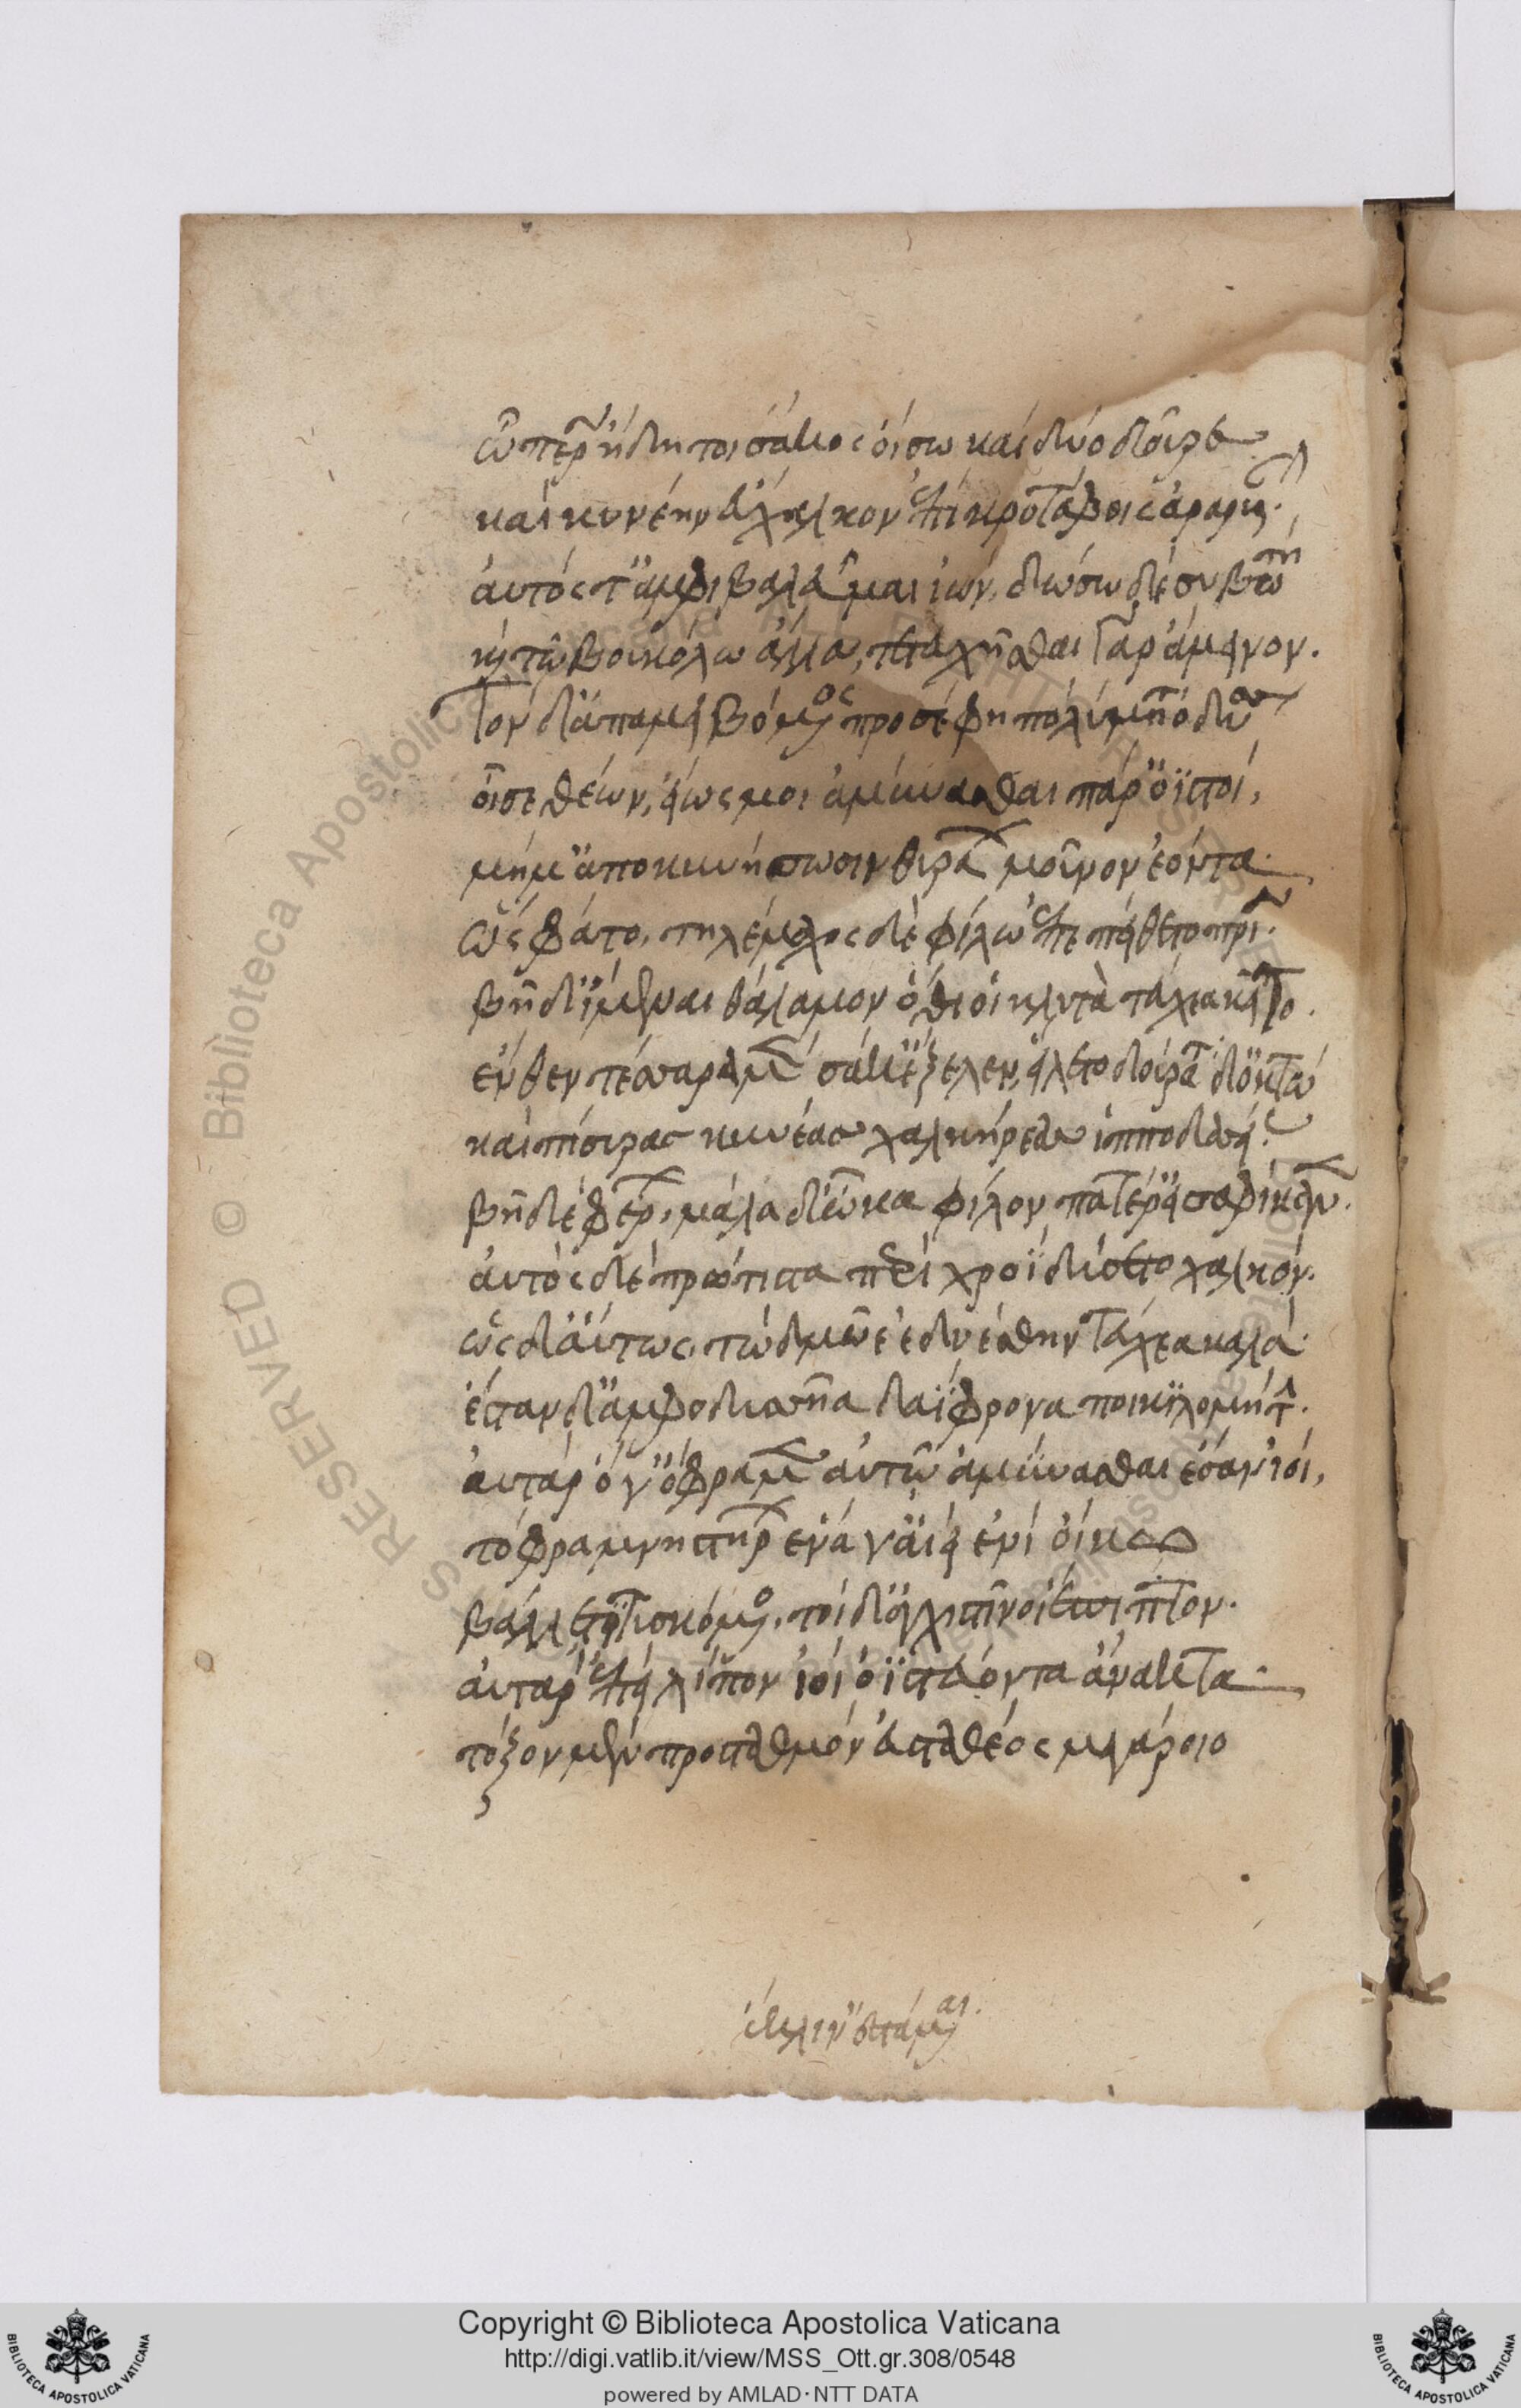 ὦ πάτερ ἤδη τοι σάκος οἴσω καὶ δύο δοῦρε
καὶ κυνέην πάγχαλκον ἐπὶ κροτάφοις ἀραρυῖαν·
αὐτός τ' ἀμφιβαλεῦμαι ἰών, δώσω δὲ συβώτῃ
καὶ τῶ βουκόλω ἄλλα, τετευχῆσθαι γὰρ ἄμεινον.
Τὸν δ' ἀπαμειβόμενος προσέφη πολύμητις ὀδυσσεύς
οἶσε θέων, εἵως μοι ἀμύνασθαι πάρ' ὀϊστοί,
μή μ' ἀποκινήσωσι θυράων μοῦνον ἐόντα.
ὣς φάτο, τηλέμαχος δὲ φίλω ἐπεπείθετο πατρί.
βῆ δ' ἴμεναι θάλαμον ὅθι οἱ κλυτὰ τεύχεα κεῖτο.
ἔνθεν τέσσαρα μὲν σάκε' ἔξελεν, δούρατα δ' ὀκτώ
καὶ πίσυρας κυνέας χαλκήρεας ἱπποδασείας.
βῆ δὲ φέρων, μάλα δ' ὦκα φίλον πατέρ' εἰσαφίκανεν.
αὐτὸς δὲ πρώτιστα περὶ χροῒ δύσετο χαλκόν.
ὣς δ' αὔτως τὼ δμῶε ἐδυέσθην τεύχεα καλά·
ἔσταν δ' ἀμφ' ὀδυσῆα δαΐφρονα ποικιλομήτην.
αὐτὰρ ὅ γ' ὄφρα μὲν αὐτῶ ἀμύνασθαι ἔσαν ἰοί,
τόφρα μνηστήρων ἕνα γ' αἰεὶ ἑνὶ οἴκω
βάλλε τιτυσκόμενος, τοὶ δ' ἀγχιστῖνοι ἔπιπτον.
αὐτὰρ ἐπεὶ λίπον ἰοὶ ὀϊστεύοντα ἄνακτα
τόξον μὲν πρὸς σταθμὸν ἐυσταθέος μεγάροιο
ἔκλιν' ἑστάμεναι.
Copyright © Biblioteca Apostolica Vaticana
http://digi.vatlib.it/view/MSS_Ott.gr.308/0548
powered by AMLAD·NTT DATA